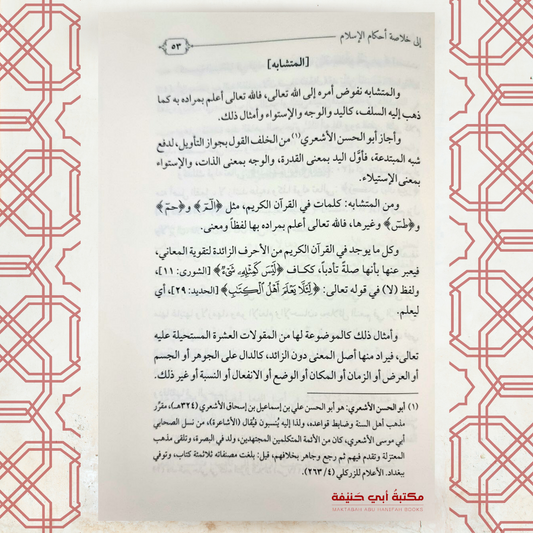 إلى خلاصة أحكام الإسلام
٥٣
[المتشابه]
والمتشابه نفوض أمره إلى الله تعالى، فالله تعالى أعلم بمراده به كما
ذهب إليه السلف، كاليد والوجه والإستواء وأمثال ذلك.
وأجاز أبو الحسن الأشعري(١) من الخلف القول بجواز التأويل، لدفع
شبه المبتدعة، فأوَّل اليد بمعنى القدرة، والوجه بمعنى الذات، والإستواء
بمعنى الإستيلاء.
ومن المتشابه: كلمات في القرآن الكريم، مثل ﴿الٓمٓ﴾ و﴿حمٓ﴾
و﴿طسٓ﴾ وغيرها، فالله تعالى أعلم بمراده بها لفظاً ومعنى.
وكل ما يوجد في القرآن الكريم من الأحرف الزائدة لتقوية المعاني،
فيعبر عنها بأنها صلةً تأدباً، ككاف ﴿لَيْسَ كَمِثْلِهِۦ شَىْءٌ﴾ [الشورى: ١١]،
ولفظ (لا) في قوله تعالى: ﴿لِّئَلَّا يَعْلَمَ أَهْلُ ٱلْكِتَٰبِ﴾ [الحديد: ٢٩]، أي
ليعلم.
وأمثال ذلك كالموضوعة لها من المقولات العشرة المستحيلة عليه
تعالى، فيراد منها أصل المعنى دون الزائد، كالدال على الجوهر أو الجسم
أو العرض أو الزمان أو المكان أو الوضع أو الانفعال أو النسبة أو غير ذلك.
(١) أبو الحسن الأشعري: هو أبو الحسن علي بن إسماعيل بن إسحاق الأشعري (٣٢٤هـ)، مقرّر
مذهب أهل السنة وضابط قواعده، ولذا إليه يُنسبون فيُقال (الأشاعرة)، من نسل الصحابي
أبي موسى الأشعري، كان من الأئمة المتكلمين المجتهدين، ولد في البصرة، وتلقى مذهب
المعتزلة وتقدم فيهم ثم رجع وجاهر بخلافهم، قيل: بلغت مصنفاته ثلاثمئة كتاب، وتوفي
ببغداد. الأعلام للزركلي (٢٦٣/٤).
مكتبة أبي حنيفة
MAKTABAH ABU HANIFAH BOOKS